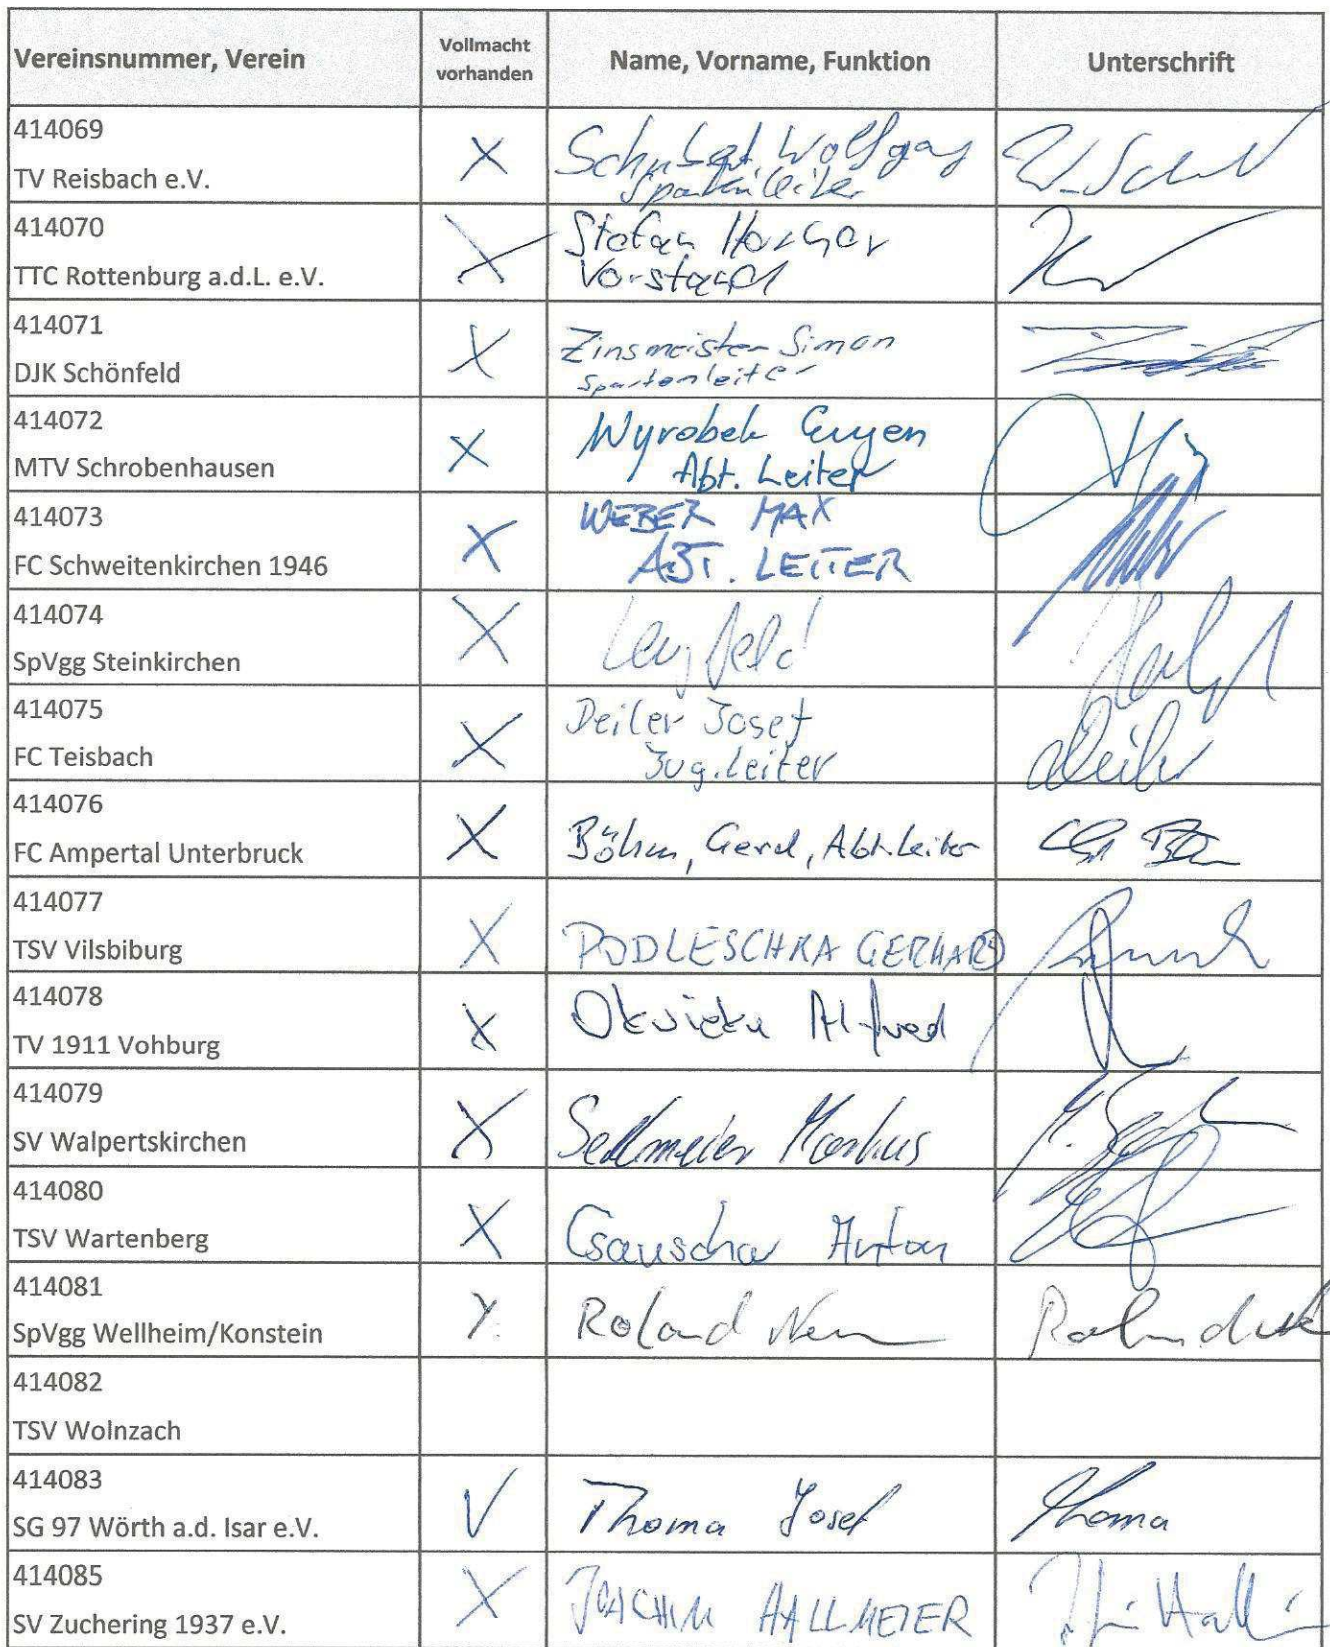 Vereinsnummer, Verein
Vollmacht
vorhanden
Name, Vorname, Funktion
Unterschrift
414069
TV Reisbach e.V.
X
Wolfgang
Spartenleiter
414070
TTC Rottenburg a.d.L. e.V.
X
Stefan
Vorstand
414071
DJK Schönfeld
X
Zinsmeister Simon
Spartenleiter
414072
MTV Schrobenhausen
X
Wyrobek Eugen
Abt. Leiter
414073
FC Schweitenkirchen 1946
X
WEBER MAX
ABT. LEITER
414074
SpVgg Steinkirchen
X
414075
FC Teisbach
X
Deiler Josef
Jug.leiter
Deiler
414076
FC Ampertal Unterbruck
X
Böhm, Gerd, Abt.Leiter
414077
TSV Vilsbiburg
X
PODLESCHKA GERHARD
414078
TV 1911 Vohburg
X
Alfred
414079
SV Walpertskirchen
X
Sellmeier Markus
414080
TSV Wartenberg
X
Csauscha Anton
414081
SpVgg Wellheim/Konstein
X
Roland
414082
TSV Wolnzach
414083
SG 97 Wörth a.d. Isar e.V.
V
Thoma Josef
Thoma
414085
SV Zuchering 1937 e.V.
X
JOACHIM HALLMEIER